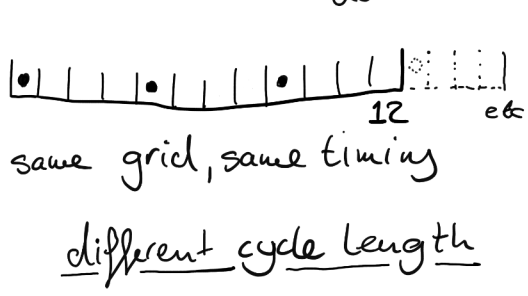 12 etc
same grid, same timing
different cycle length